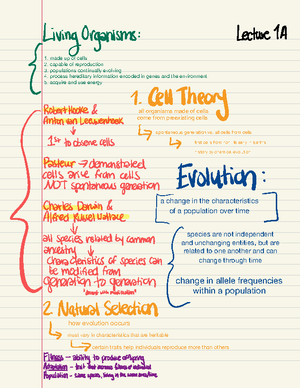 Living Organisms:
Lecture 1A
1. made up of cells
2. capable of reproduction
3. populations continually evolving
4. process hereditary information encoded in genes and the environment
5. acquire and use energy
Robert Hooke &
Anton van Leeuwenhoek
1st to observe cells
1. Cell Theory
all organisms made of cells
come from preexisting cells
spontaneous generation vs. all cells from cells
Pasteur → demonstrated
cells arise from cells
NOT spontaneous generation
Evolution:
a change in the characteristics
of a population over time
Charles Darwin &
Alfred Russel Wallace
all species related by common
ancestry
characteristics of species can
be modified from
generation to generation
"descent with modification"
species are not independent
and unchanging entities, but are
related to one another and can
change through time
change in allele frequencies
within a population
2. Natural Selection
how evolution occurs
must vary in characteristics that are heritable
certain traits help individuals reproduce more than others
Fitness → ability to produce offspring
Adaptation → trait that increases fitness of individual
Population → same species, living in the same area/time